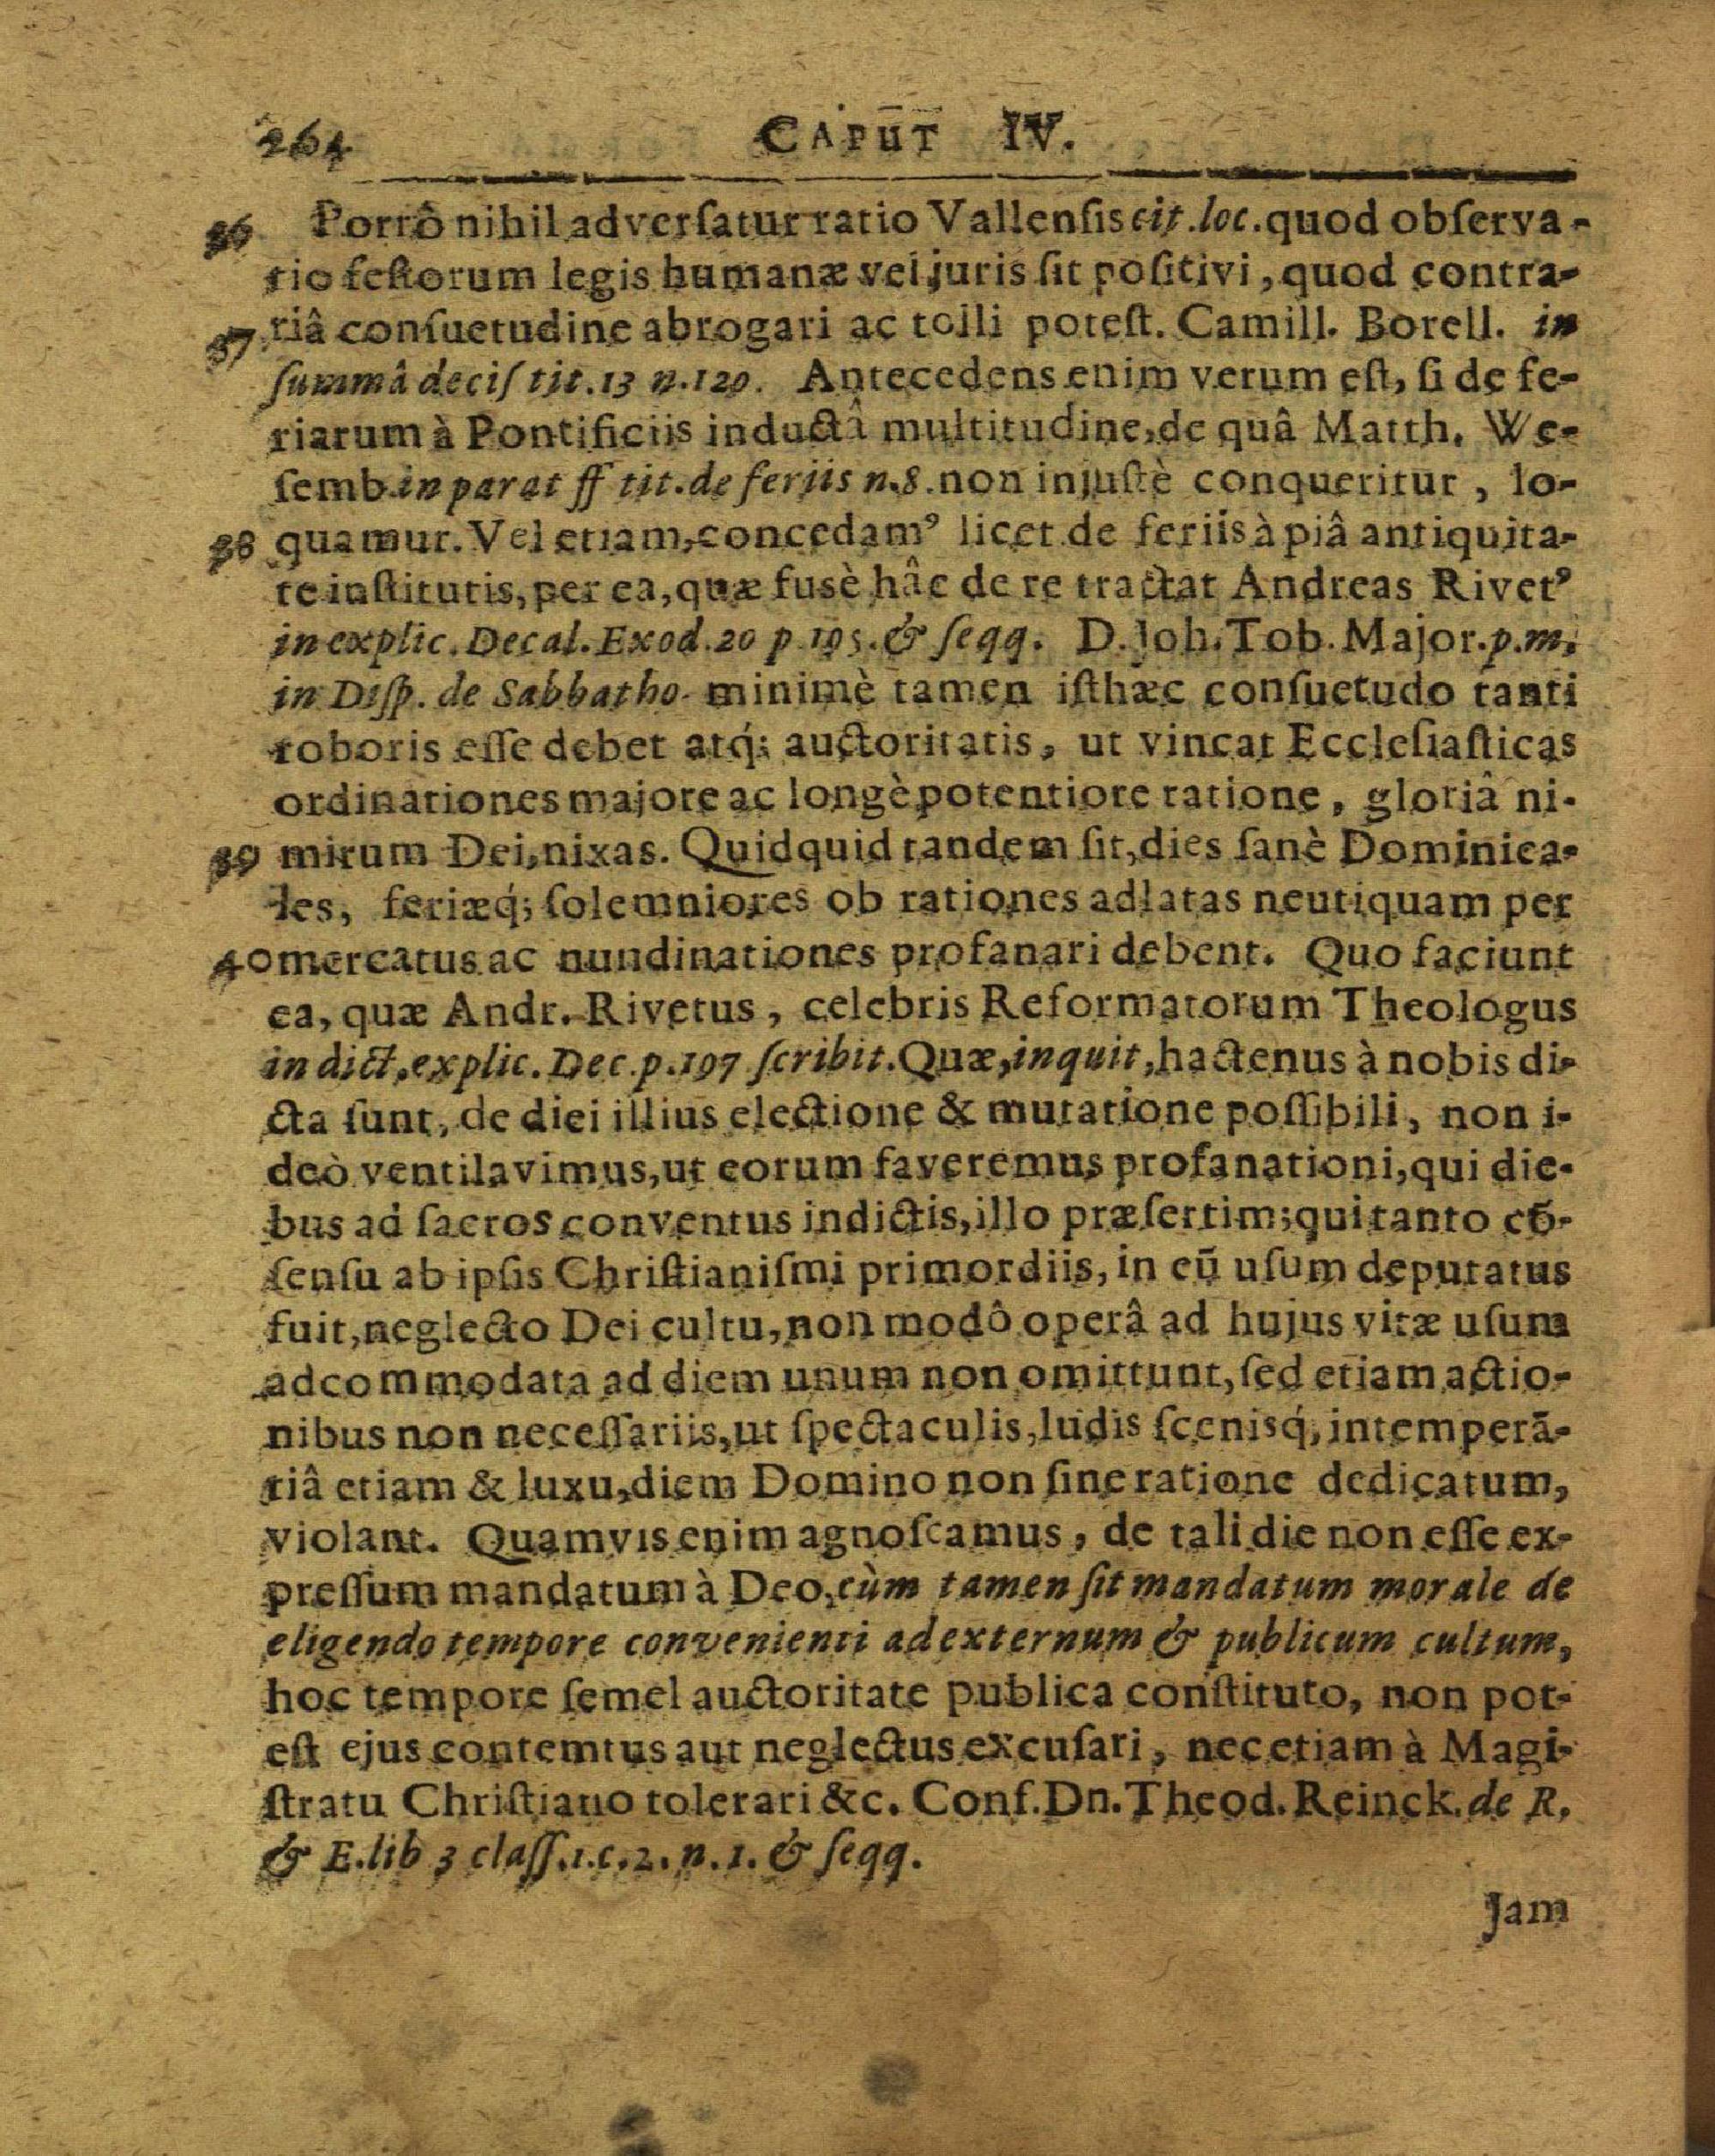 264 CAPUT IV.
36 Porrô nihil adversatur ratio Vallensis cit. loc. quod observa-
tio festorum legis humanæ vel juris sit positivi, quod contra-
37 riâ consuetudine abrogari ac tolli potest. Camill. Borell. in
summâ decis tit. 13 n. 120. Antecedens enim verum est, si de fe-
riarum à Pontificiis inductâ multitudine, de quâ Matth. We-
semb. in parat ff tit. de feriis n. 8. non injustè conqueritur, lo-
38 quamur. Vel etiam, concedamꝰ licet de feriis à piâ antiquita-
te institutis, per ea, quæ fusè hâc de re tractat Andreas Rivetꝰ
in explic. Decal. Exod. 20 p. 195. & seqq. D. Joh. Tob. Major. p. m.
in Disp. de Sabbatho. minimè tamen isthæc consuetudo tanti
roboris esse debet atq́; auctoritatis, ut vincat Ecclesiasticas
ordinationes majore ac longè potentiore ratione, gloriâ ni-
39 mirum Dei, nixas. Quidquid tandem sit, dies sanè Dominica-
les, feriæq́; solemniores ob rationes adlatas neutiquam per
40 mercatus ac nundinationes profanari debent. Quo faciunt
ea, quæ Andr. Rivetus, celebris Reformatorum Theologus
in dict. explic. Dec. p. 197 scribit. Quæ, inquit, hactenus à nobis di-
cta sunt, de diei illius electione & mutatione possibili, non i-
deò ventilavimus, ut eorum faveremus profanationi, qui die-
bus ad sacros conventus indictis, illo præsertim; qui tanto cō-
sensu ab ipsis Christianismi primordiis, in eū usum deputatus
fuit, neglecto Dei cultu, non modô operâ ad hujus vitæ usum
adcommodata ad diem unum non omittunt, sed etiam actio-
nibus non necessariis, ut spectaculis, ludis scenisq́; intemperā-
tiâ etiam & luxu, diem Domino non sine ratione dedicatum,
violant. Quamvis enim agnoscamus, de tali die non esse ex-
pressum mandatum à Deo, cùm tamen sit mandatum morale de
eligendo tempore convenienti ad externum & publicum cultum,
hoc tempore semel auctoritate publica constituto, non pot-
est ejus contemtus aut neglectus excusari, nec etiam à Magi-
stratu Christiano tolerari &c. Conf. Dn. Theod. Reinck. de R.
& E. lib 3 class. 1. c. 2. n. 1. & seqq.
Jam